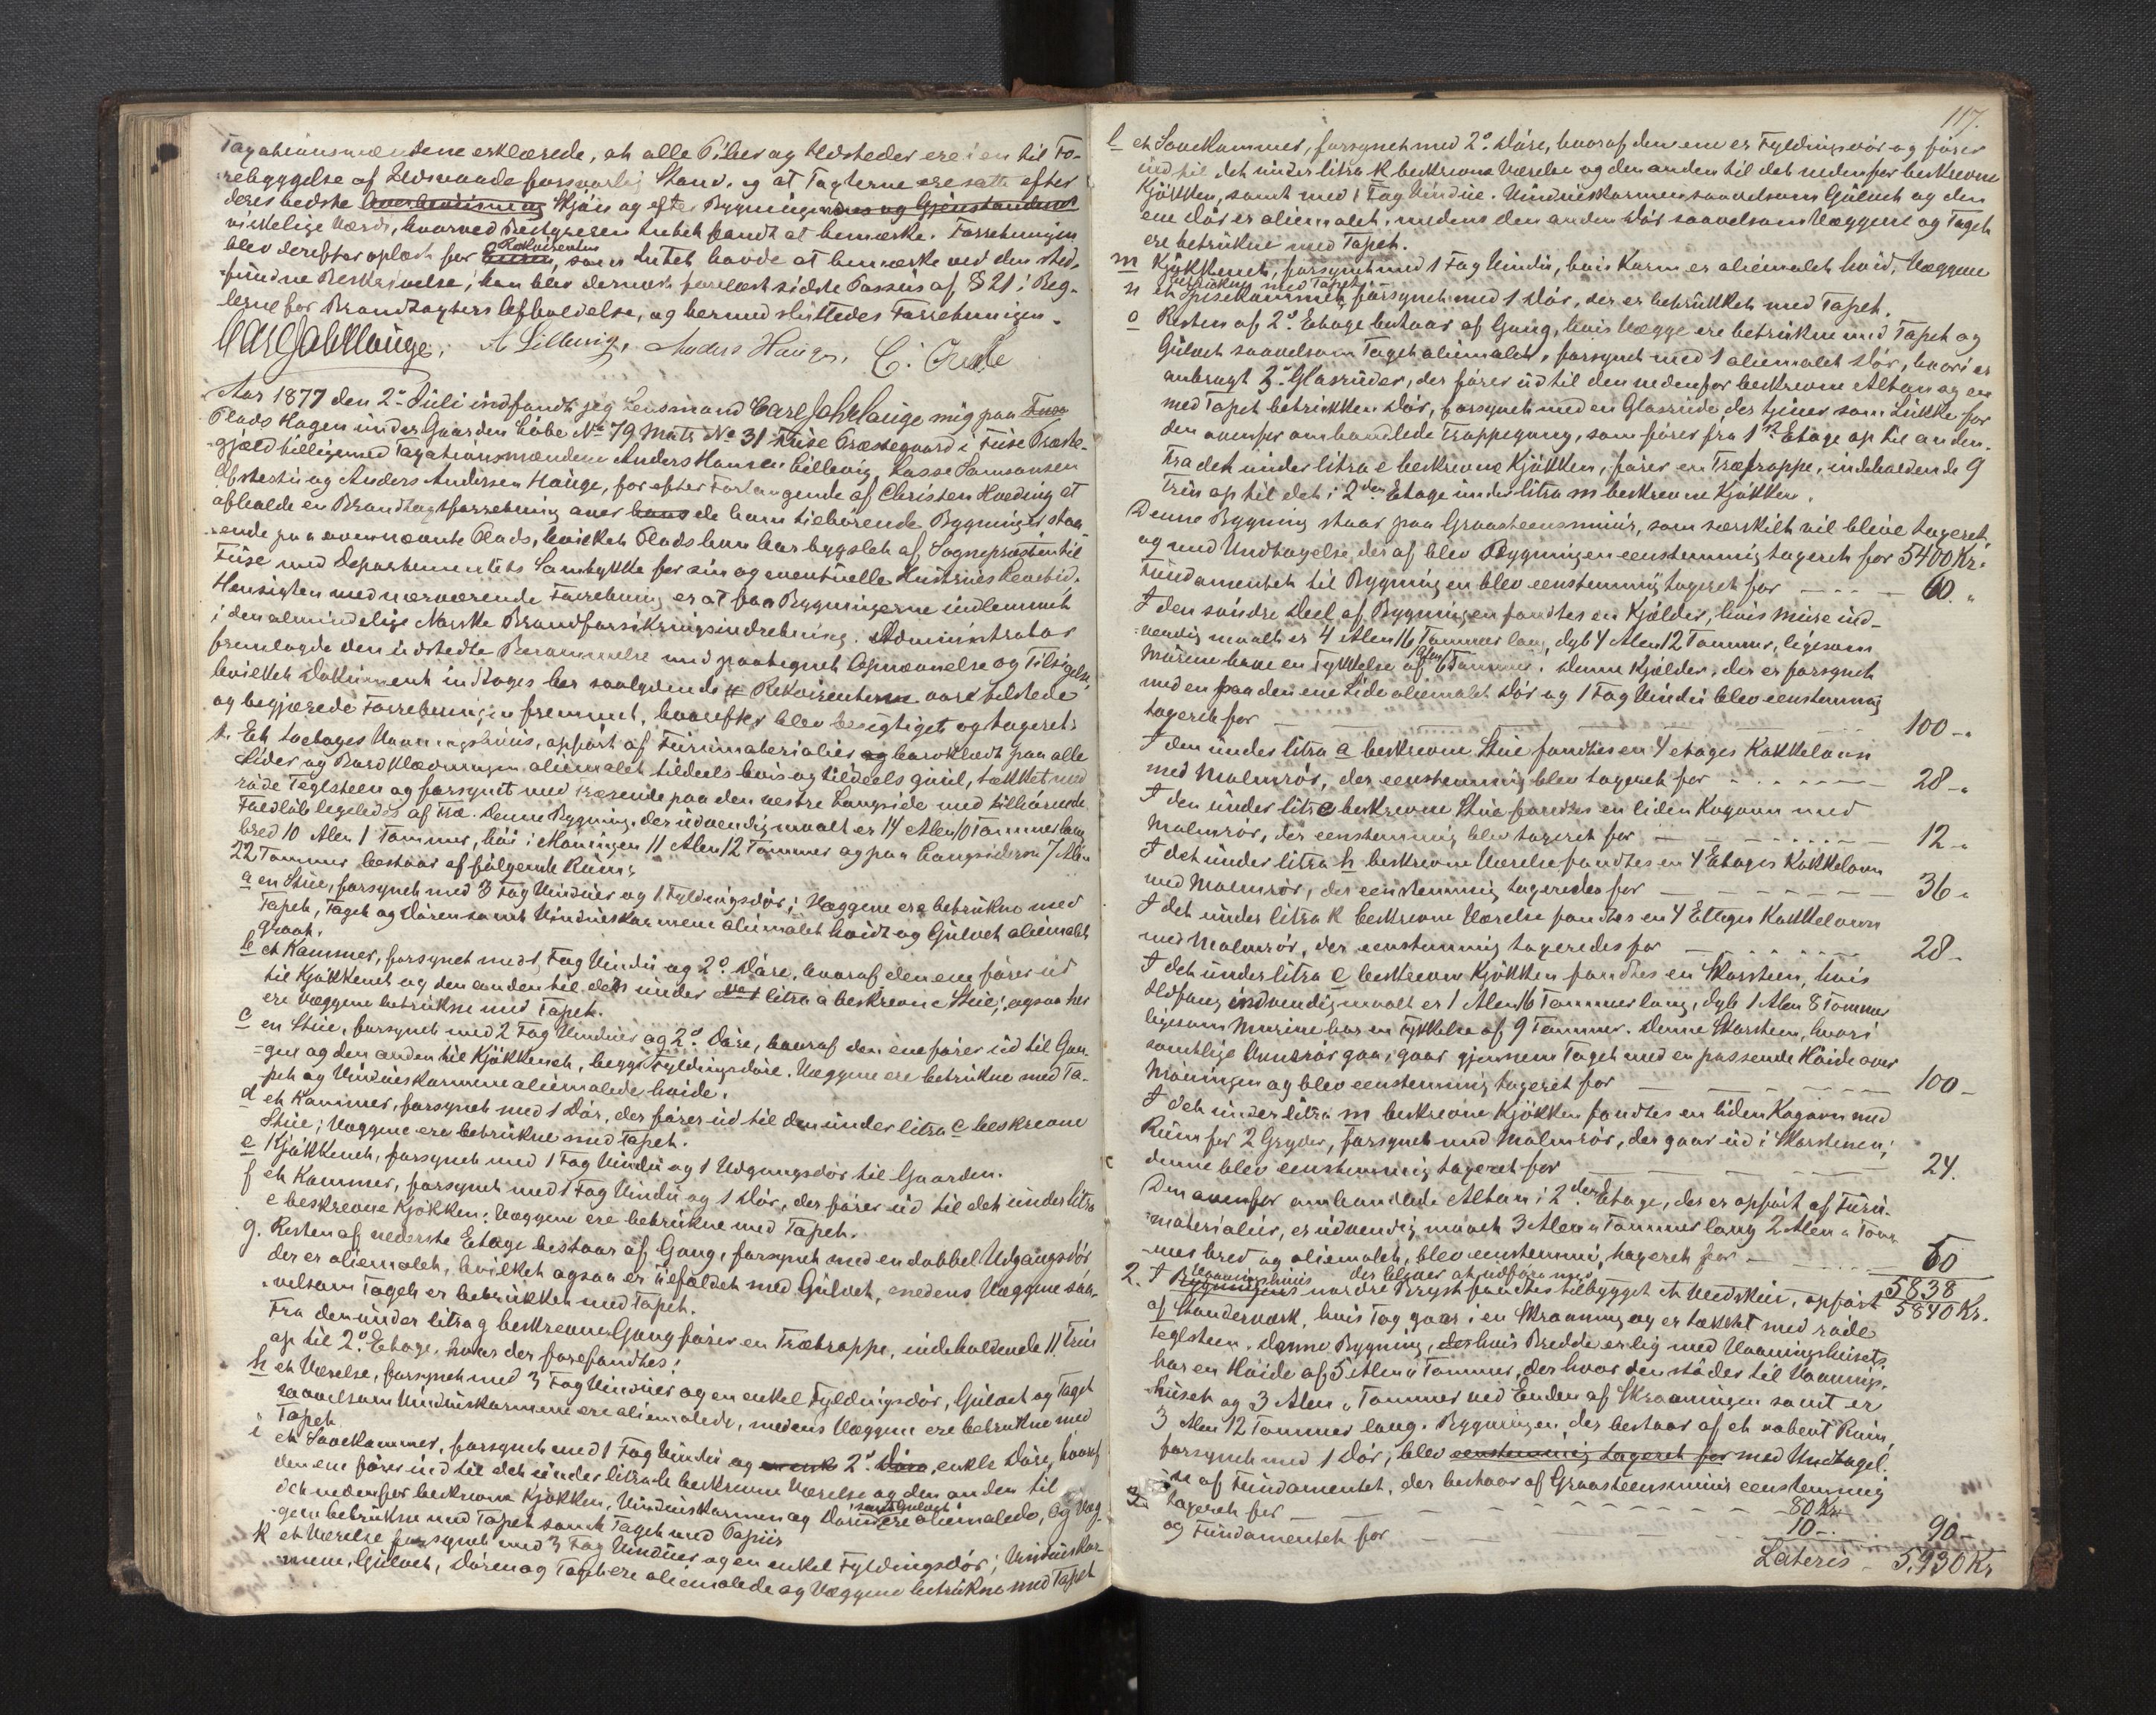 Taxationsmændene erklærede, at alle Piber og Ildsteder ere i en til Fo-
rebyggelse af Ildsvaade forsvarlig Stand, og at Taxterne ere satte efter
deres bedste Overbeviisning Skjøn og efter Bygningernes og Gjenstandenes
virkelige Værdi, hvorved Bestyreren Intet fandt at bemærke. Forretningen
blev derefter oplæst for Eieren, Rekvirenten som Intet havde at bemærke ved den sted-
fundne Beskrivelse; han blev dernæst forelæst sidste Passus af § 21 i Reg-
lerne for Brandtaxters Afholdelse, og hermed sluttedes Forretningen.
Carl Joh. Hauge, A Lillevig, Anders Hauge, C.
Aar 1877 den 2den Juli indfandt jeg Lensmand Carl Joh. Hauge mig paa Fuse
Plads Hagen under Gaarden Løbe No 79 Matr No 31 Fuse Præstegaard i Fuse Præste-
gjæld tilligemed Taxationsmændene Anders Hansen Lillevig, Lasse Samsonsen
og Anders Andersen Hauge, for efter Forlangende af Christen Harding at
afholde en Brandtaxtforretning over hans de ham tilhørende Bygninger staa-
ende paa ovennævnte Plads, hvilken Plads han har bygslet af Sognepræsten til
Fuse med Departementets Samtykke for sin og eventuelle Hustrues Levetid.
Hensigten med nærværende Forretning er at faa Bygningerne indlemmet
i den almindelige Norske Brandforsikringsindretning. Administrator
fremlagde den udstedte Berammelse med paategnet Opnævnelse og Tilsigelse,
hvilket Dokument indtages her saalydende # Rekvirenten var tilstede
og begjærede Forretningen fremmet, hvorefter blev besigtiget og taxeret:
1. Et toetages Vaaningshuus, opført af Furumaterialier og bordklædt paa alle
Sider og Bordklædningen oliemalet tildeels hvid og tildeels guul, tækket med
røde Teglsteen og forsynet med Trærende paa den vestre Langside med tilhørende
Nedløb legeledes af Træ. Denne Bygning, der udvendig maalt er 14 Alen 10 Tommer lang
bred 10 Alen 1 Tommer, høi i Møningen 11 Alen 12 Tommer og paa Langsiderne 7 Alen
22 Tommer bestaar af følgende Rum:
a en Stue, forsynet med 3 Fag Vinduer og 1 Fyldingsdør; Væggene ere betrukne med
Tapet, Taget og Døren samt Vindueskarmene oliemalet hvidt og Gulvet oliemalet
graat.
b et Kammer, forsynet med 1 Fag Vindu og 2de Døre, hvoraf den ene fører ud
til Kjøkkenet og den anden til den under litra a beskrevne Stue; ogsaa her
ere Væggene betrukne med Tapet.
c en Stue, forsynet med 2 Fag Vinduer og 2de Døre, hvoraf den ene fører ud til Gan-
gen og den anden til Kjøkkenet, begge Fyldingsdøre. Væggene ere betrukne med Ta-
pet og Vindueskarmene oliemalede hvide.
d et Kammer, forsynet med 1 Dør, der fører ud til den under litra c beskrevne
Stue; Væggene ere betrukne med Tapet.
e Kjøkkenet, forsynet med 1 Fag Vindu og 1 Udgangsdør til Gaarden.
f et Kammer, forsynet med 1 Fag Vindu og 1 Dør, der fører ud til det under litra
e beskrevne Kjøkken; Væggene ere betrukne med Tapet.
g. Resten af nederste Etage bestaar af Gang, forsynet med en dobbel Udgangsdør
der er oliemalet, hvilket ogsaa er Tilfældet med Gulvet, medens Væggene saa-
velsom Taget er betrukket med Tapet.
Fra den under litra g beskrevne Gang fører en Trætrappe, indeholdende 11 Trin
op til 2den Etage, hvor der forefandtes:
h et Værelse, forsynet med 3 Fag Vinduer og en enkel Fyldingsdør, Gulvet og Taget
saavelsom Vindueskarmene ere oliemalede, medens Væggene ere betrukne med
Tapet
i et Sovekammer, forsynet med 1 Fag Vindu og 2de Døre, enkle Døre, hvoraf
den ene fører ind til det under litra h beskrevne Værelse og den anden til
det nedenfor beskrevne Kjøkken, Vindueskarmen og Dørene samt Gulvet ere oliemalede, og Væg-
gene betrukne med Tapet samt Taget med Papiir
k et Værelse forsynet med 3 Fag Vinduer og en enkel Fyldingsdør; Vindueskar-
mene, Gulvet, Døren og Taget ere oliemalede og Væggene betrukne med Tapet
117.
l et Sovekammer, forsynet med 2de Døre, hvoraf den ene er Fyldingsdør og fører
ind til det under litra k beskrevne Værelse og den anden til det nedenfor beskrevne
Kjøkken, samt med 1 Fag Vindue. Vindueskarmen saavelsom Gulvet og den
ene Dør er oliemalet, medens den anden Dør saavelsom Væggene og Taget
ere betrukne med Tapet.
m Kjøkkenet, forsynet med 1 Fag Vindu, hvis Karm er oliemalet hvid, Væggene
betrukne med Tapet.
n et Spisekammer, forsynet med 1 Dør, der er betrukket med Tapet.
o Resten af 2den Etage bestaar af Gang, hvis Vægge ere betrukne med Tapet og
Gulvet saavelsom Taget oliemalet, forsynet med 1 oliemalet Dør, hvori er
anbragt 2de Glasruder, der fører ud til den nedenfor beskrevne Altan og en
med Tapet betrukken Dør, forsynet med en Glasrude der tjener som Lukke for
den ovenfor omhandlede Trappegang, som fører fra 1ste Etage op til anden.
Fra det under litra e beskrevne Kjøkken, fører en Trætrappe, indeholdende 9
Trin op til det i 2den Etage under litra m beskrevne Kjøkken.
Denne Bygning staar paa Graasteensmuur, som særskilt vil blive taxeret,
og med Undtagelse deraf blev Bygningen eenstemmig taxeret for 5400 Kr.
Fundamentet til Bygningen blev eenstemmig taxeret for — 60. "
I den søndre Deel af Bygningen fandtes en Kjelder, hvis Mure ind-
vendig maalt er 4 Alen 16 Tommer lang, dyb 4 Alen 12 Tommer, ligesom
Murene have en Tykkelse af 1 Alen 6 Tommer. Denne Kjelder, der er forsynet
med en paa den ene Side oliemalet Dør og 1 Fag Vindu blev eenstemmig
taxeret for — 100 - "
I den under litra a beskrevne Stue fandtes en 4 etages Kakkelovn
med Malmrør, der eenstemmig blev taxeret for — 28 - "
I den under litra c beskrevne Stue fandtes en liden Kogovn med
Malmrør, der eenstemmig blev taxeret for — 12 - "
I det under litra h beskrevne Værelse fandtes en 4 Etages Kakkelovn
med Malmrør, der eenstemmig taxeredes for — 36 - "
I det under litra k beskrevne Værelse fandtes en 4 Etages Kakkelovn
med Malmrør, der eenstemmig taxeredes for — 28 -
I det under litra e beskrevne Kjøkken fandtes en Skorsteen, hvis
Ildfang indvendig maalt er 1 Alen 16 Tommer lang, dyb 1 Alen 8 Tommer
ligesom Murene har en Tykkelse af 9 Tommer. Denne Skorsteen, hvori
samtlige Ovnsrør gaa, gaar gjennem Taget med en passende Høide over
Møningen og blev eenstemmig taxeret for — 100 -
I det under litra m beskrevne Kjøkken fandtes en liden Kogovn med
Rum for 2 Gryder, forsynet med Malmrør, der gaar ud i Skorstenen;
denne blev eenstemmig taxeret for — 24.
Den ovenfor omhandlede Altan i 2den Etage, der er opført af Furu-
materialier, er udvendig maalt 3 Alen " Tommer lang 2 Alen " Tom-
mer bred og oliemalet, blev eenstemmig taxeret for — 50
5838
2. I Bygningens Vaaningshuus nordre Bryst fandtes tilbygget et Vedskur, opført 5840 Kr.
af Standerværk, hvis Tag gaar i en Skraaning og er tækket med røde
Teglsteen. Denne Bygning, der hvis Bredde er lig med Vaaningshusets
har en Høide af 5 Alen " Tommer, der hvor den støder til Vaanings-
huset og 3 Alen " Tommer ved Enden af Skraaningen samt er
3 Alen 12 Tommer lang. Bygningen, der bestaar af et aabent Rum,
forsynet med 1 Dør, blev eenstemmig taxeret for med Undtagel-
se af Fundamentet, der bestaar af Graasteensmuur eenstemmig
taxeret for — 80 Kr.
og Fundamentet for — 10 -. 90 -
Lateris - 5,930 Kr